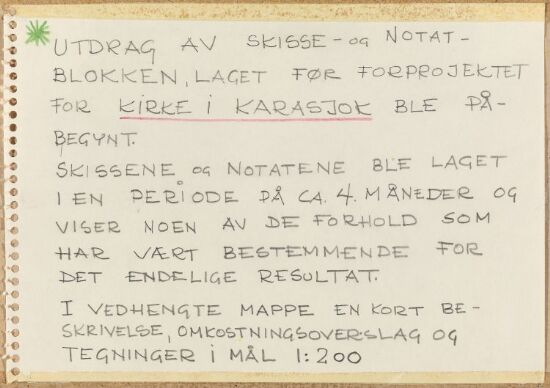 UTDRAG AV SKISSE- OG NOTAT-
BLOKKEN, LAGET FØR FORPROJEKTET
FOR KIRKE I KARASJOK BLE PÅ-
BEGYNT.
SKISSENE OG NOTATENE BLE LAGET
I EN PERIODE PÅ CA. 4. MÅNEDER OG
VISER NOEN AV DE FORHOLD SOM
HAR VÆRT BESTEMMENDE FOR
DET ENDELIGE RESULTAT.
I VEDHENGTE MAPPE EN KORT BE-
SKRIVELSE, OMKOSTNINGSOVERSLAG OG
TEGNINGER I MÅL 1:200